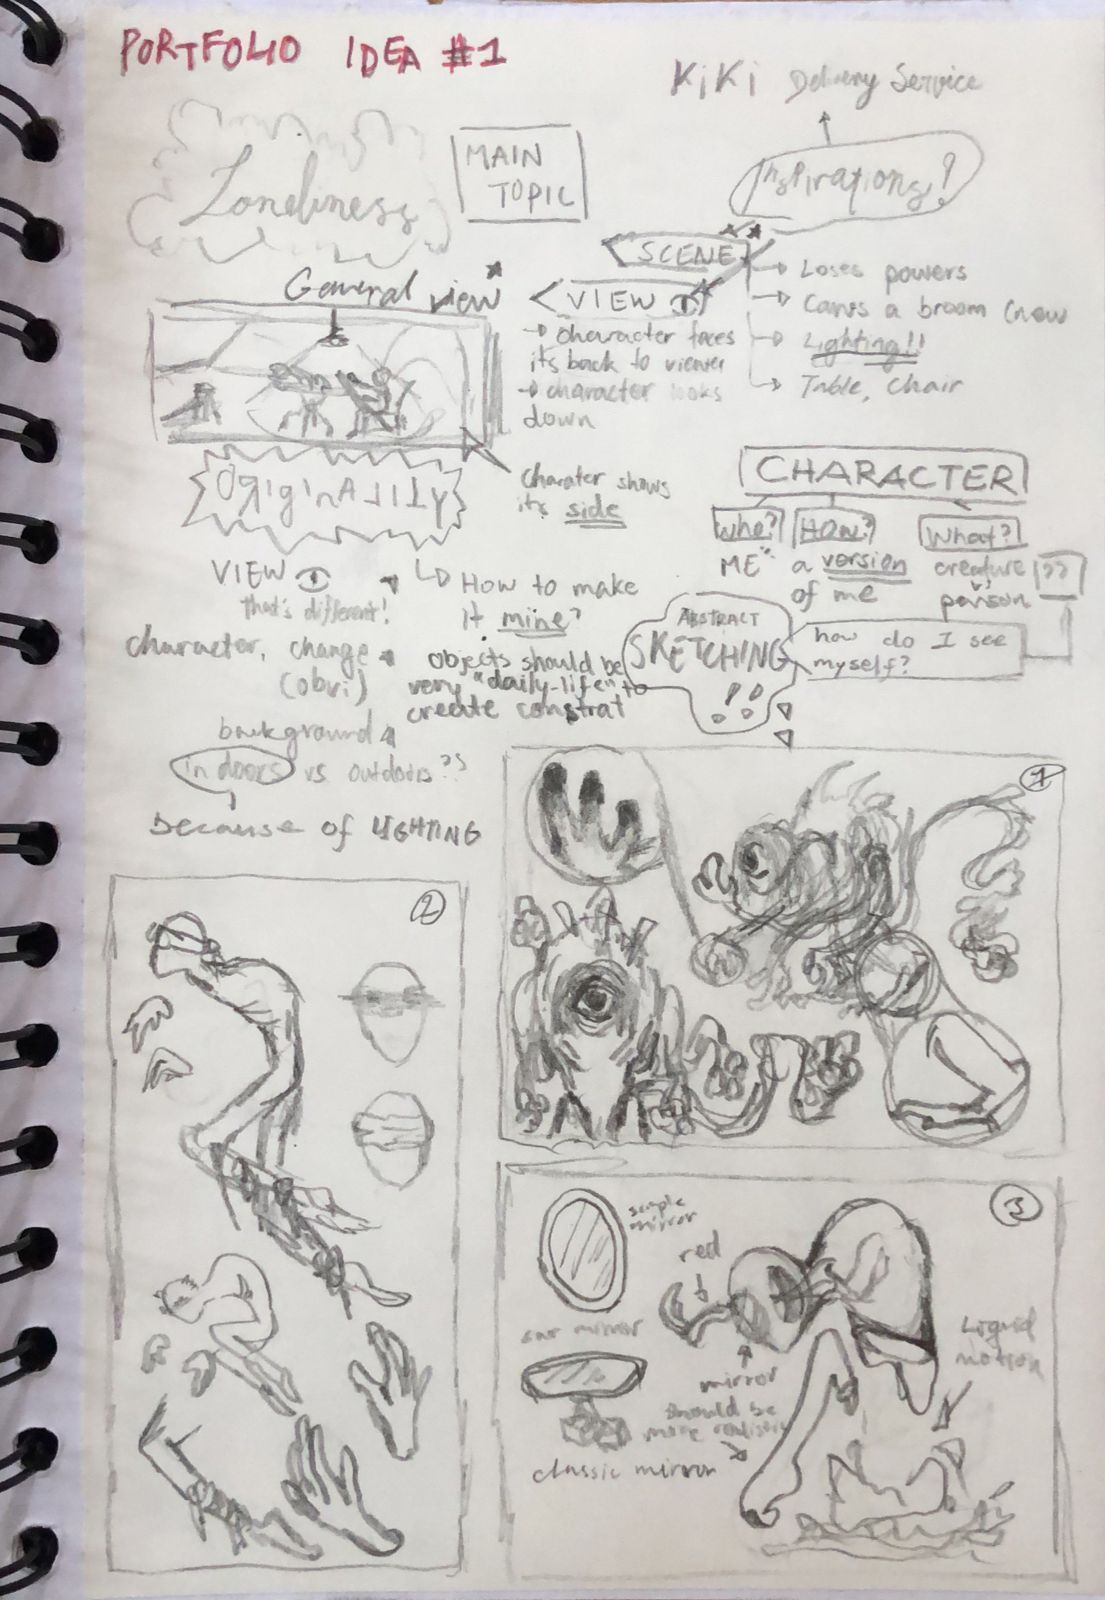 PORTFOLIO IDEA #1
KiKi Delivery Service
Loneliness
MAIN
TOPIC
Inspirations!
SCENE
→ Loses powers
→ Carves a broom (new
→ Lighting!!
→ Table, chair
General view*
< VIEW
→ character faces
its back to viewer
→ character looks
down
charater shows
its side
OrigiNALITY
CHARACTER
Who? How? What?
ME a version creature ??
of me person
VIEW
that's different!
How to make
it mine?
character, change
(obvi)
objects should be
very "daily-life" to
create constrat
ABSTRACT
SKETCHING
!!
how do I see
myself?
background
indoors vs outdoors??
because of LIGHTING
1
2
3
simple
mirror
red
car mirror
mirror
should be
more realistic
classic mirror
Liquid
motion